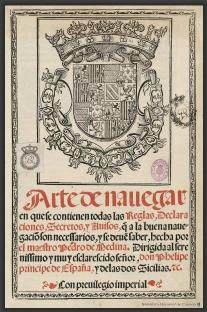 Arte de nauegar
en que se contienen todas las Reglas, Declara
ciones, Secretos, y Auisos, q̃ a la buena naue
gaciõ son necessarios, y se deuẽ saber, hecha por
el maestro Pedro de Medina. Dirigida al sere
nissimo y muy esclarescido señor, don Phelipe
principe de España, y delas dos Sicilias. ⁊c.
Con preuilegio imperial